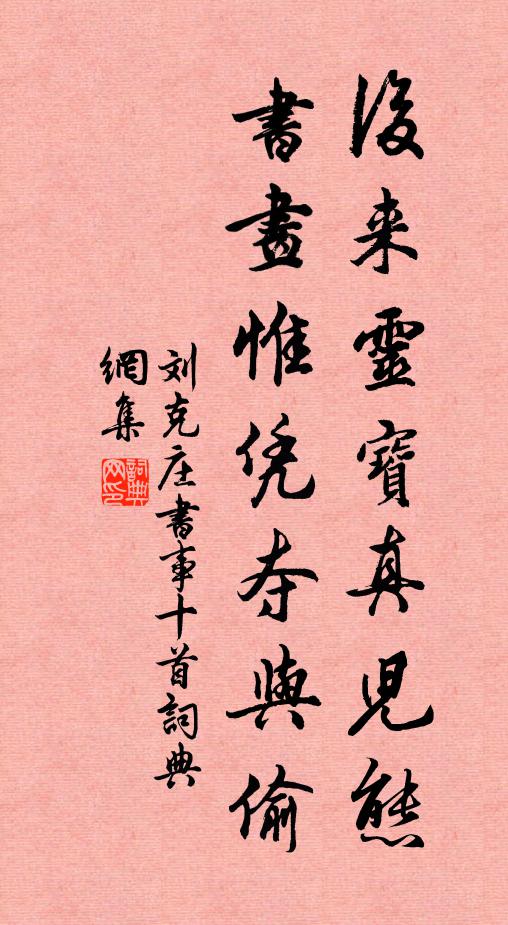 後来靈寶真児態
書畫惟凭夺與偷
刘克庄書事十首詞典
網集
詞典网印